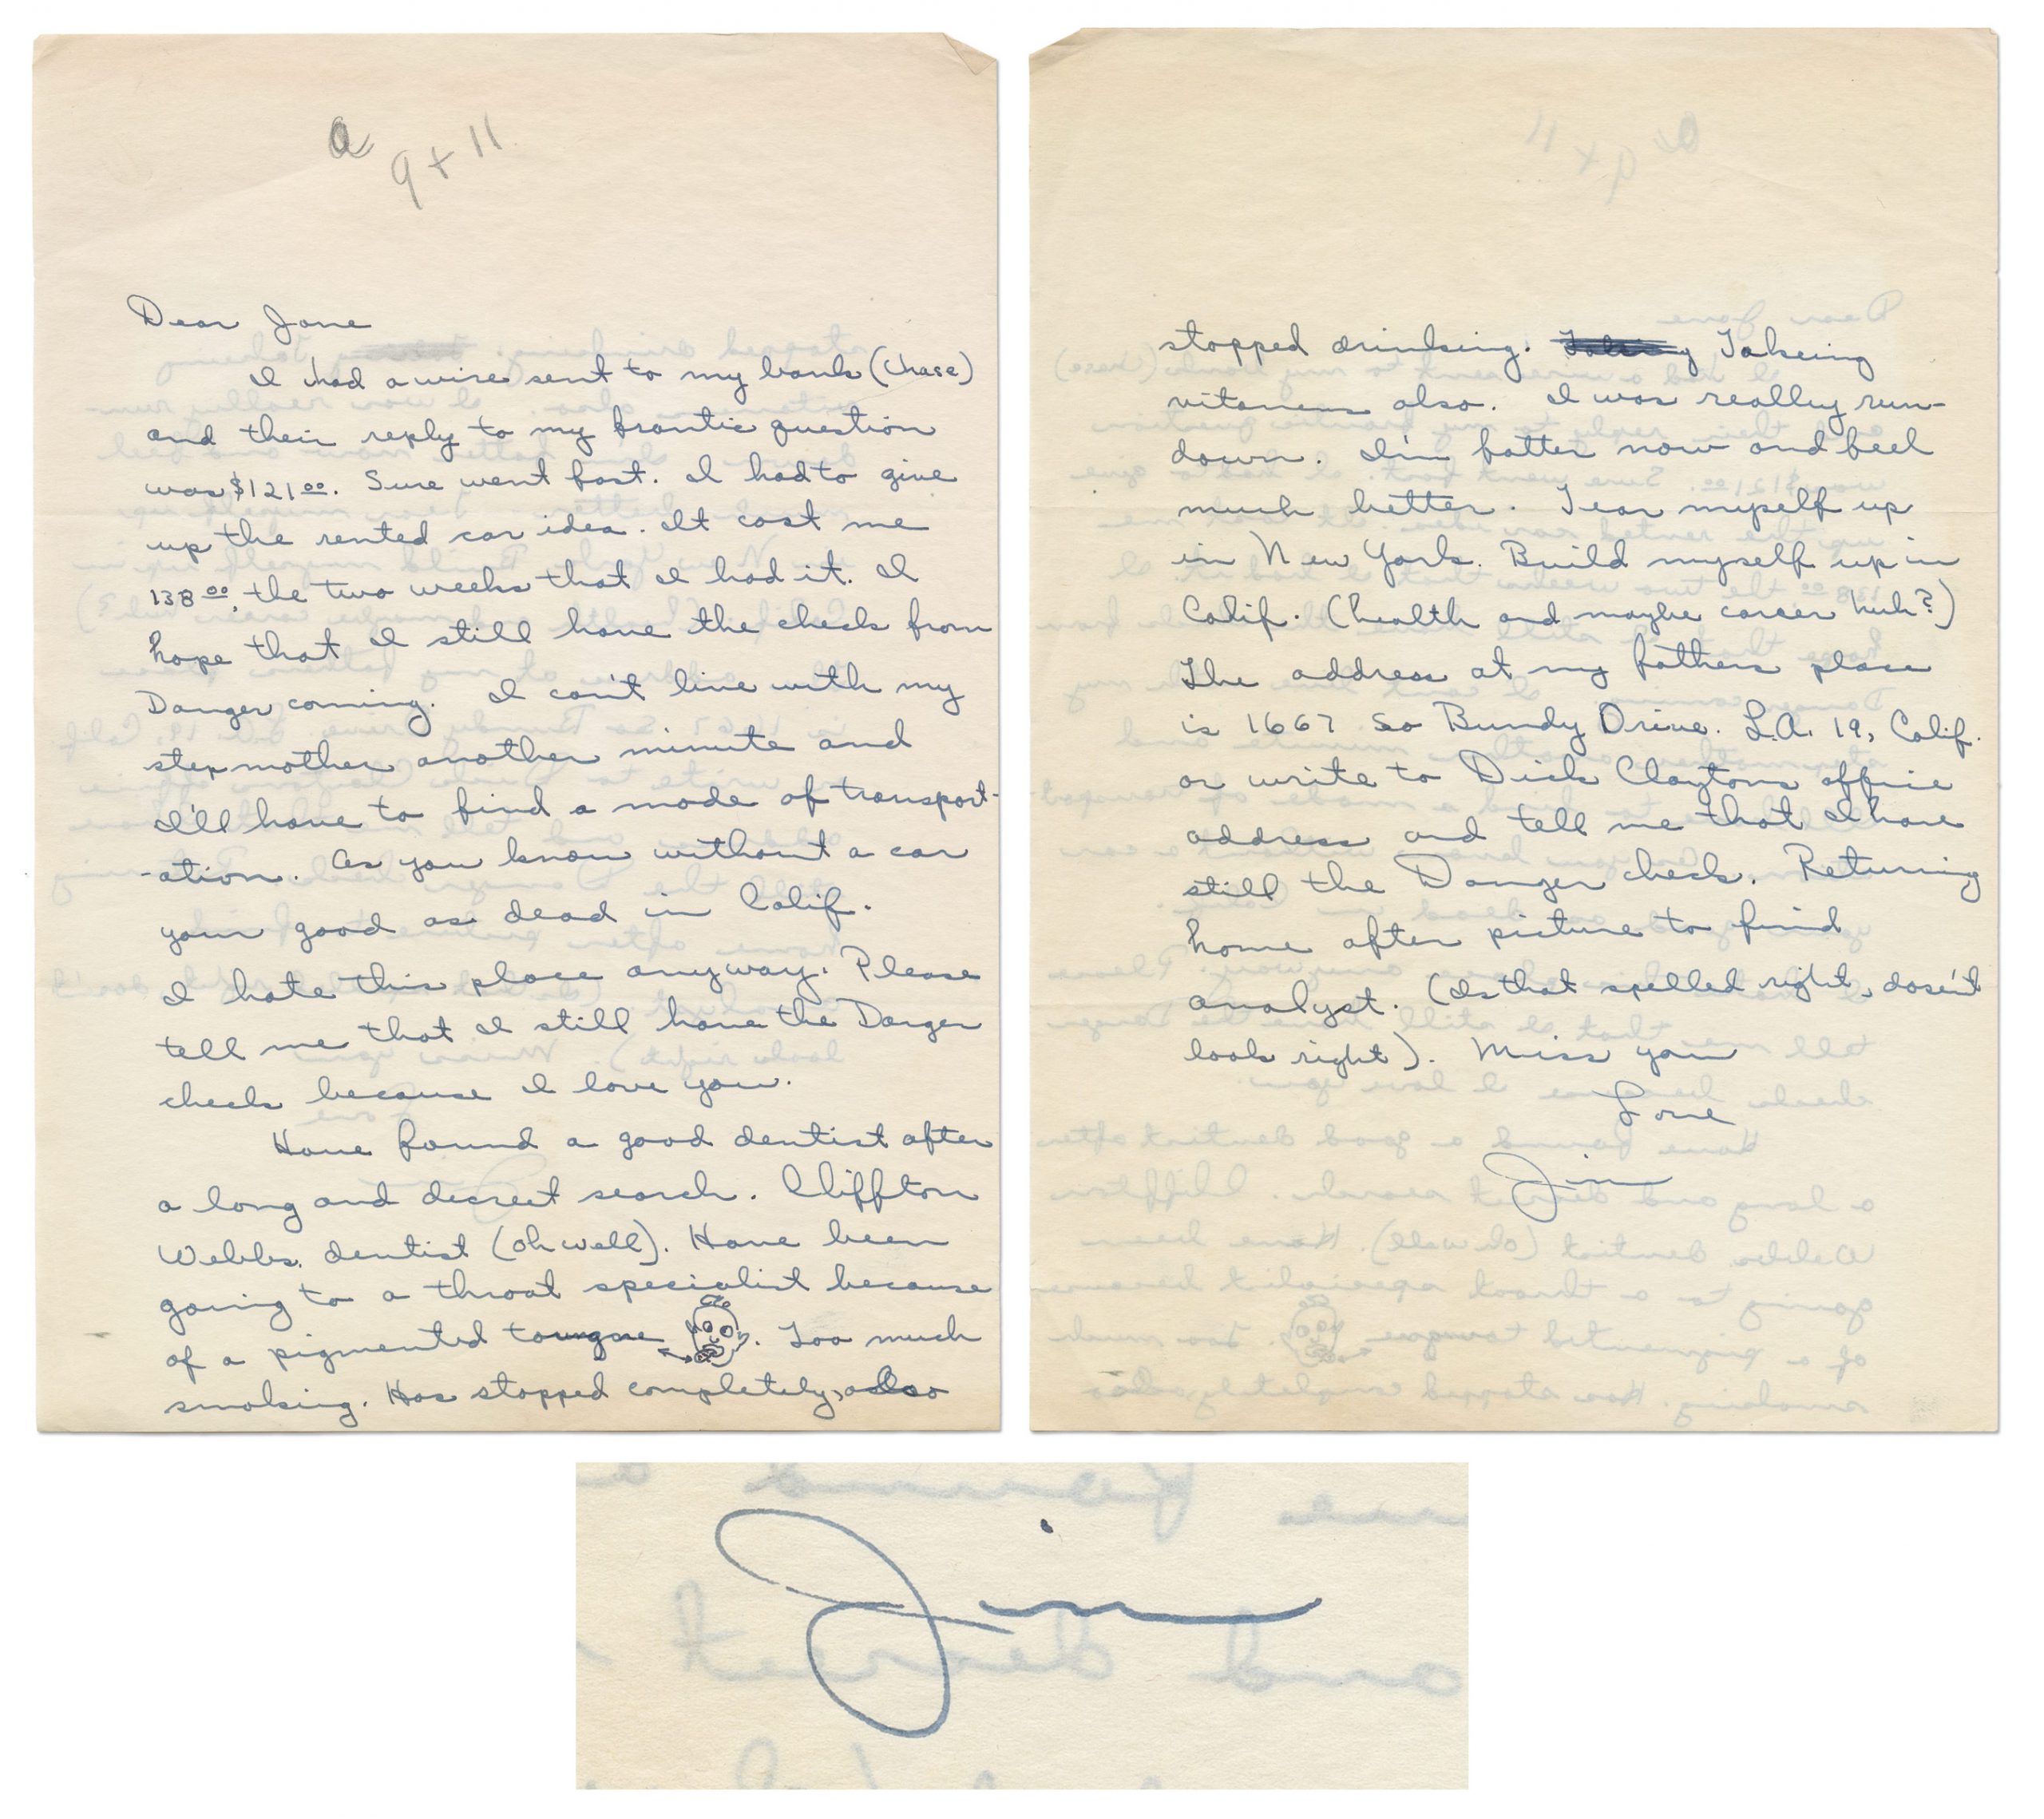 a
9 + 11
Dear Jane
I had a wire sent to my bank (Chase)
and their reply to my frantic question
was $121 00. Sure went fast. I had to give
up the rented car idea. It cost me
138 00, the two weeks that I had it. I
hope that I still have the check from
Danger coming. I can't live with my
stepmother another minute and
I'll have to find a mode of transport-
-ation. As you know without a car
your good as dead in Calif.
I hate this place anyway. Please
tell me that I still have the Danger
check because I love you.
Have found a good dentist after
a long and decreet search. Cliffton
Webbs. dentist (oh well). Have been
going to a throat specialist because
of a pigmented toungue. Too much
smoking. Has stopped completely, also
stopped drinking. Takeing
vitamens also. I was really run-
down. I'm fatter now and feel
much better. Tear myself up
in New York. Build myself up in
Calif. (health and maybe career huh?)
The address at my fathers place
is 1667 So Bundy Drive. L.A. 19, Calif.
or write to Dick Claytons office
address and tell me that I have
still the Danger check. Returning
home after picture to find
analyst. (Is that spelled right, dosen't
look right). Miss you
Love
Jim
Jim